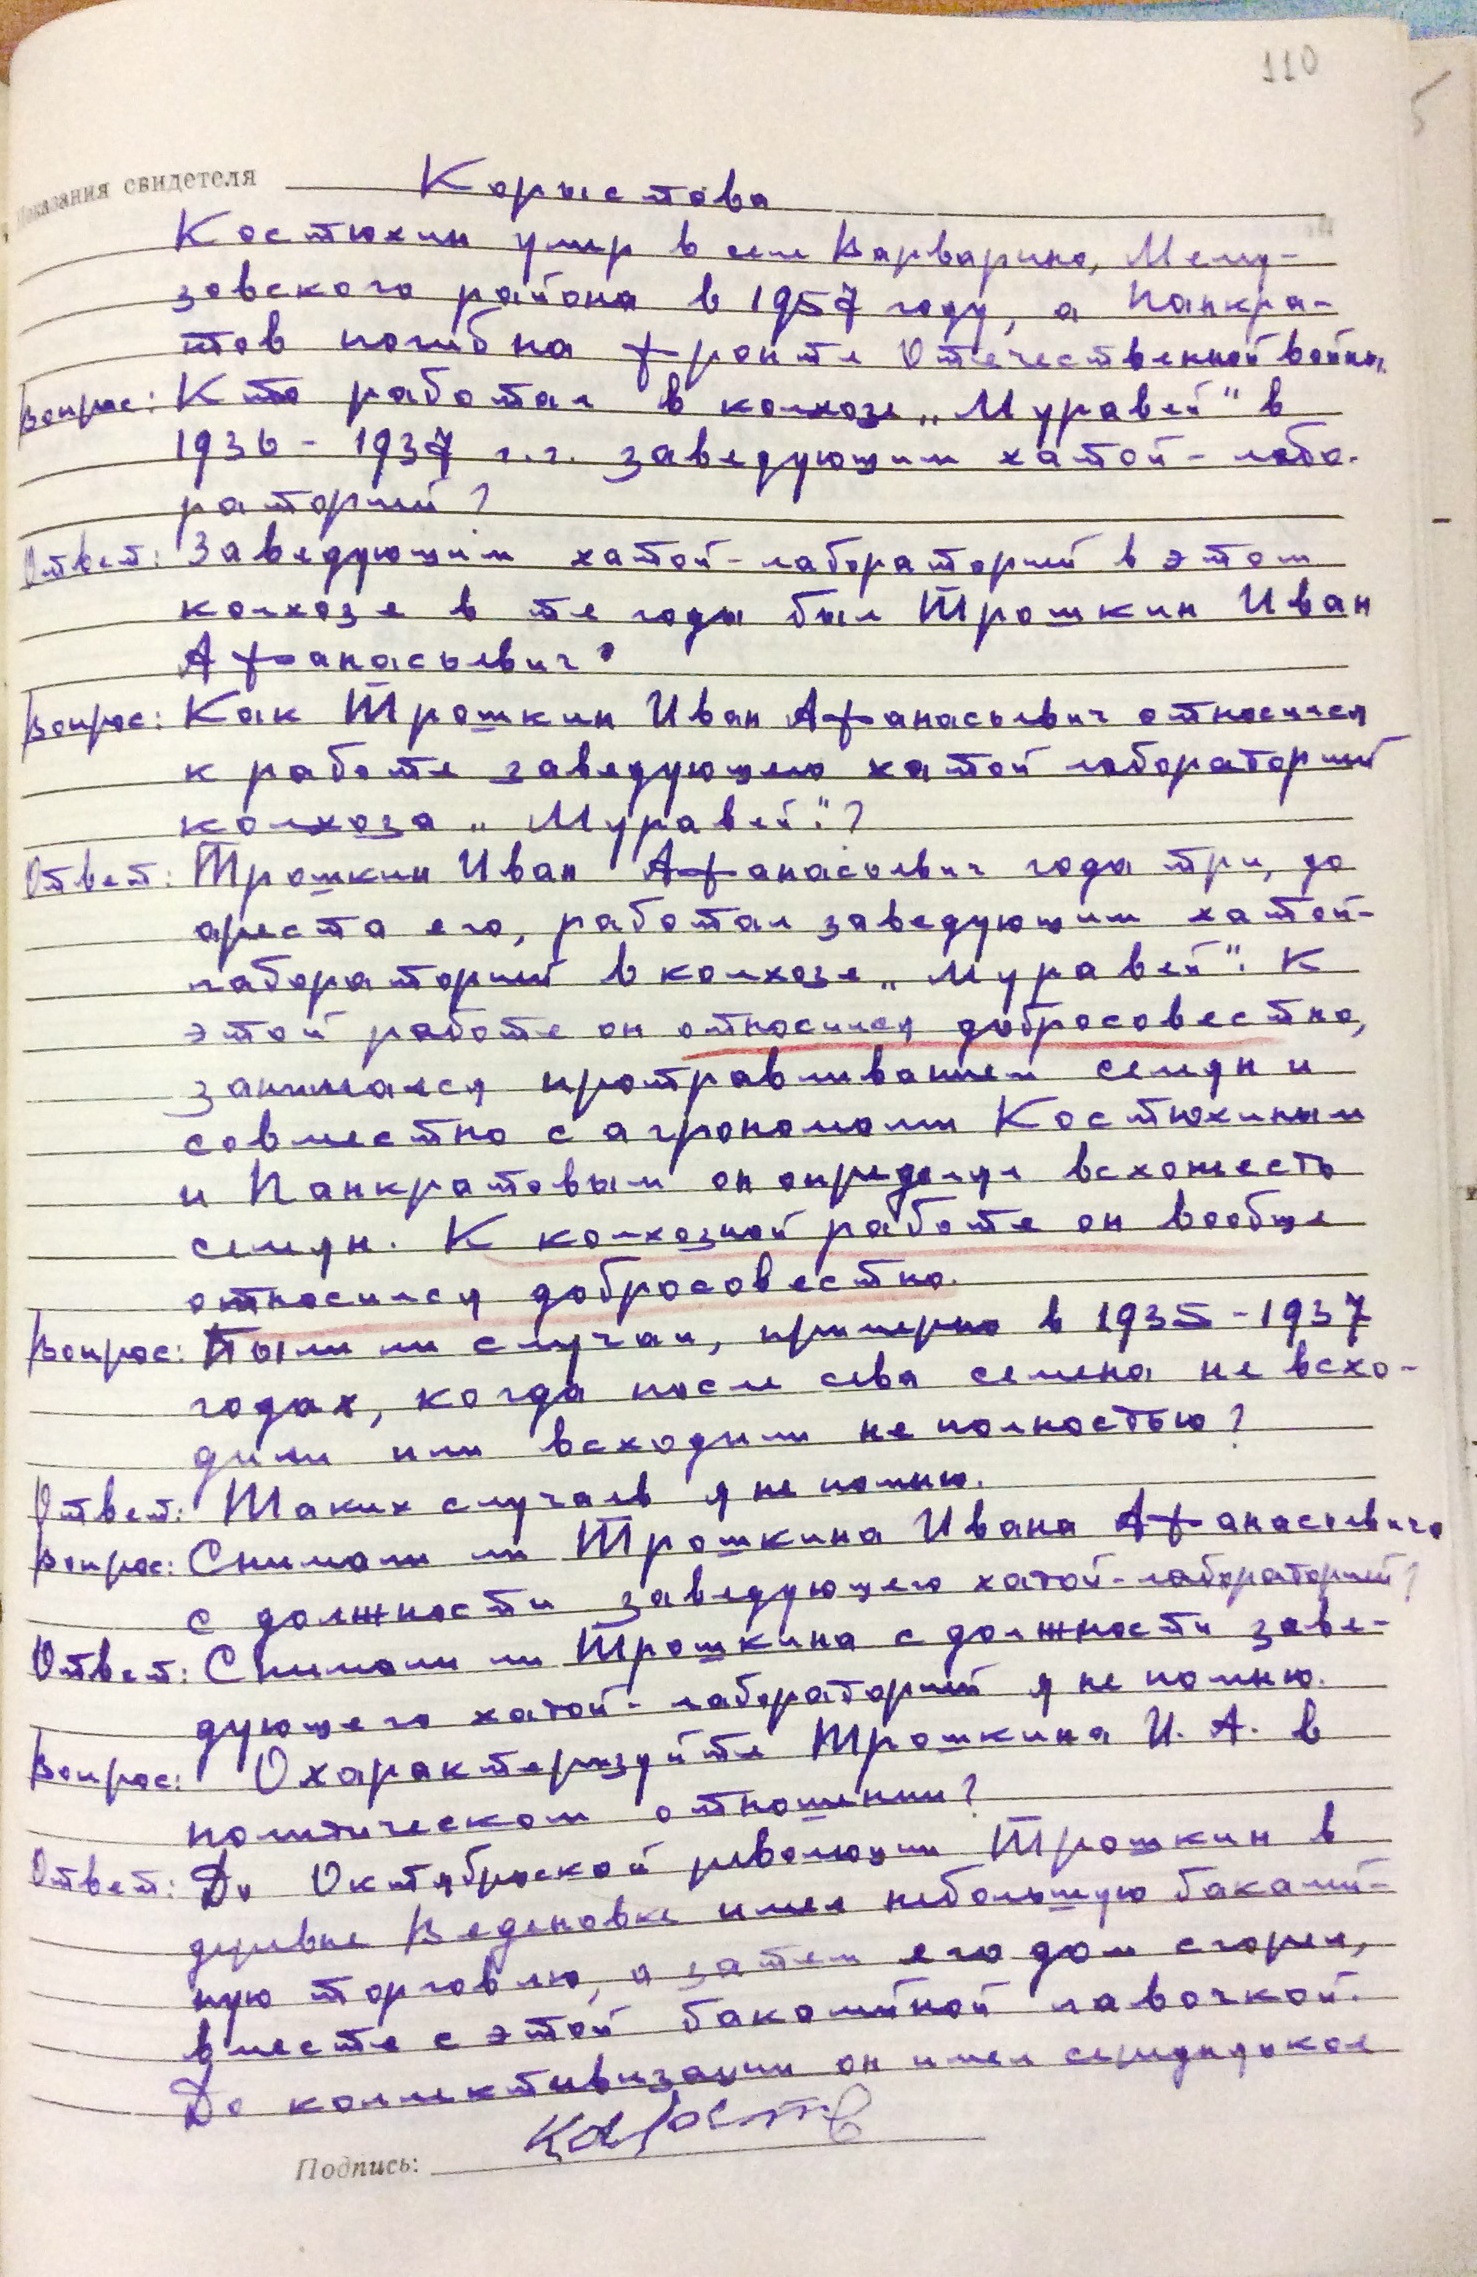 110
Показания свидетеля Корыстова
Костюхин умер в селе Варварино, Мелу-
зовского района в 1957 году, а Панкра-
тов погиб на фронте Отечественной войны.
Вопрос: Кто работал в колхозе „Муравей" в
1936 - 1937 г.г. заведующим хатой-лабо-
раторией?
Ответ: Заведующим хатой-лабораторией в этом
колхозе в те годы был Трошкин Иван
Афанасьевич.
Вопрос: Как Трошкин Иван Афанасьевич относился
к работе заведующего хатой лабораторией
колхоза „Муравей"?
Ответ: Трошкин Иван Афанасьевич года три, до
ареста его, работал заведующим хатой-
лабораторией в колхозе „Муравей". К
этой работе он относился добросовестно,
занимался протравливанием семян и
совместно с агрономами Костюхиным
и Панкратовым он определял всхожесть
семян. К колхозной работе он вообще
относился добросовестно.
Вопрос: Были ли случаи, примерно в 1935 - 1937
годах, когда после сева семена не всхо-
дили или всходили не полностью?
Ответ: Таких случаев я не помню.
Вопрос: Снимали ли Трошкина Ивана Афанасьевича
с должности заведующего хатой-лабораторией?
Ответ: Снимали ли Трошкина с должности заве-
дующего хатой-лабораторией я не помню.
Вопрос: Охарактеризуйте Трошкина И. А. в
политическом отношении?
Ответ: До Октябрьской революции Трошкин в
деревне Веденовке имел небольшую бакалей-
ную торговлю, а затем его дом сгорел,
вместе с этой бакалейной лавочкой.
До коллективизации он имел середняцкое
Подпись: